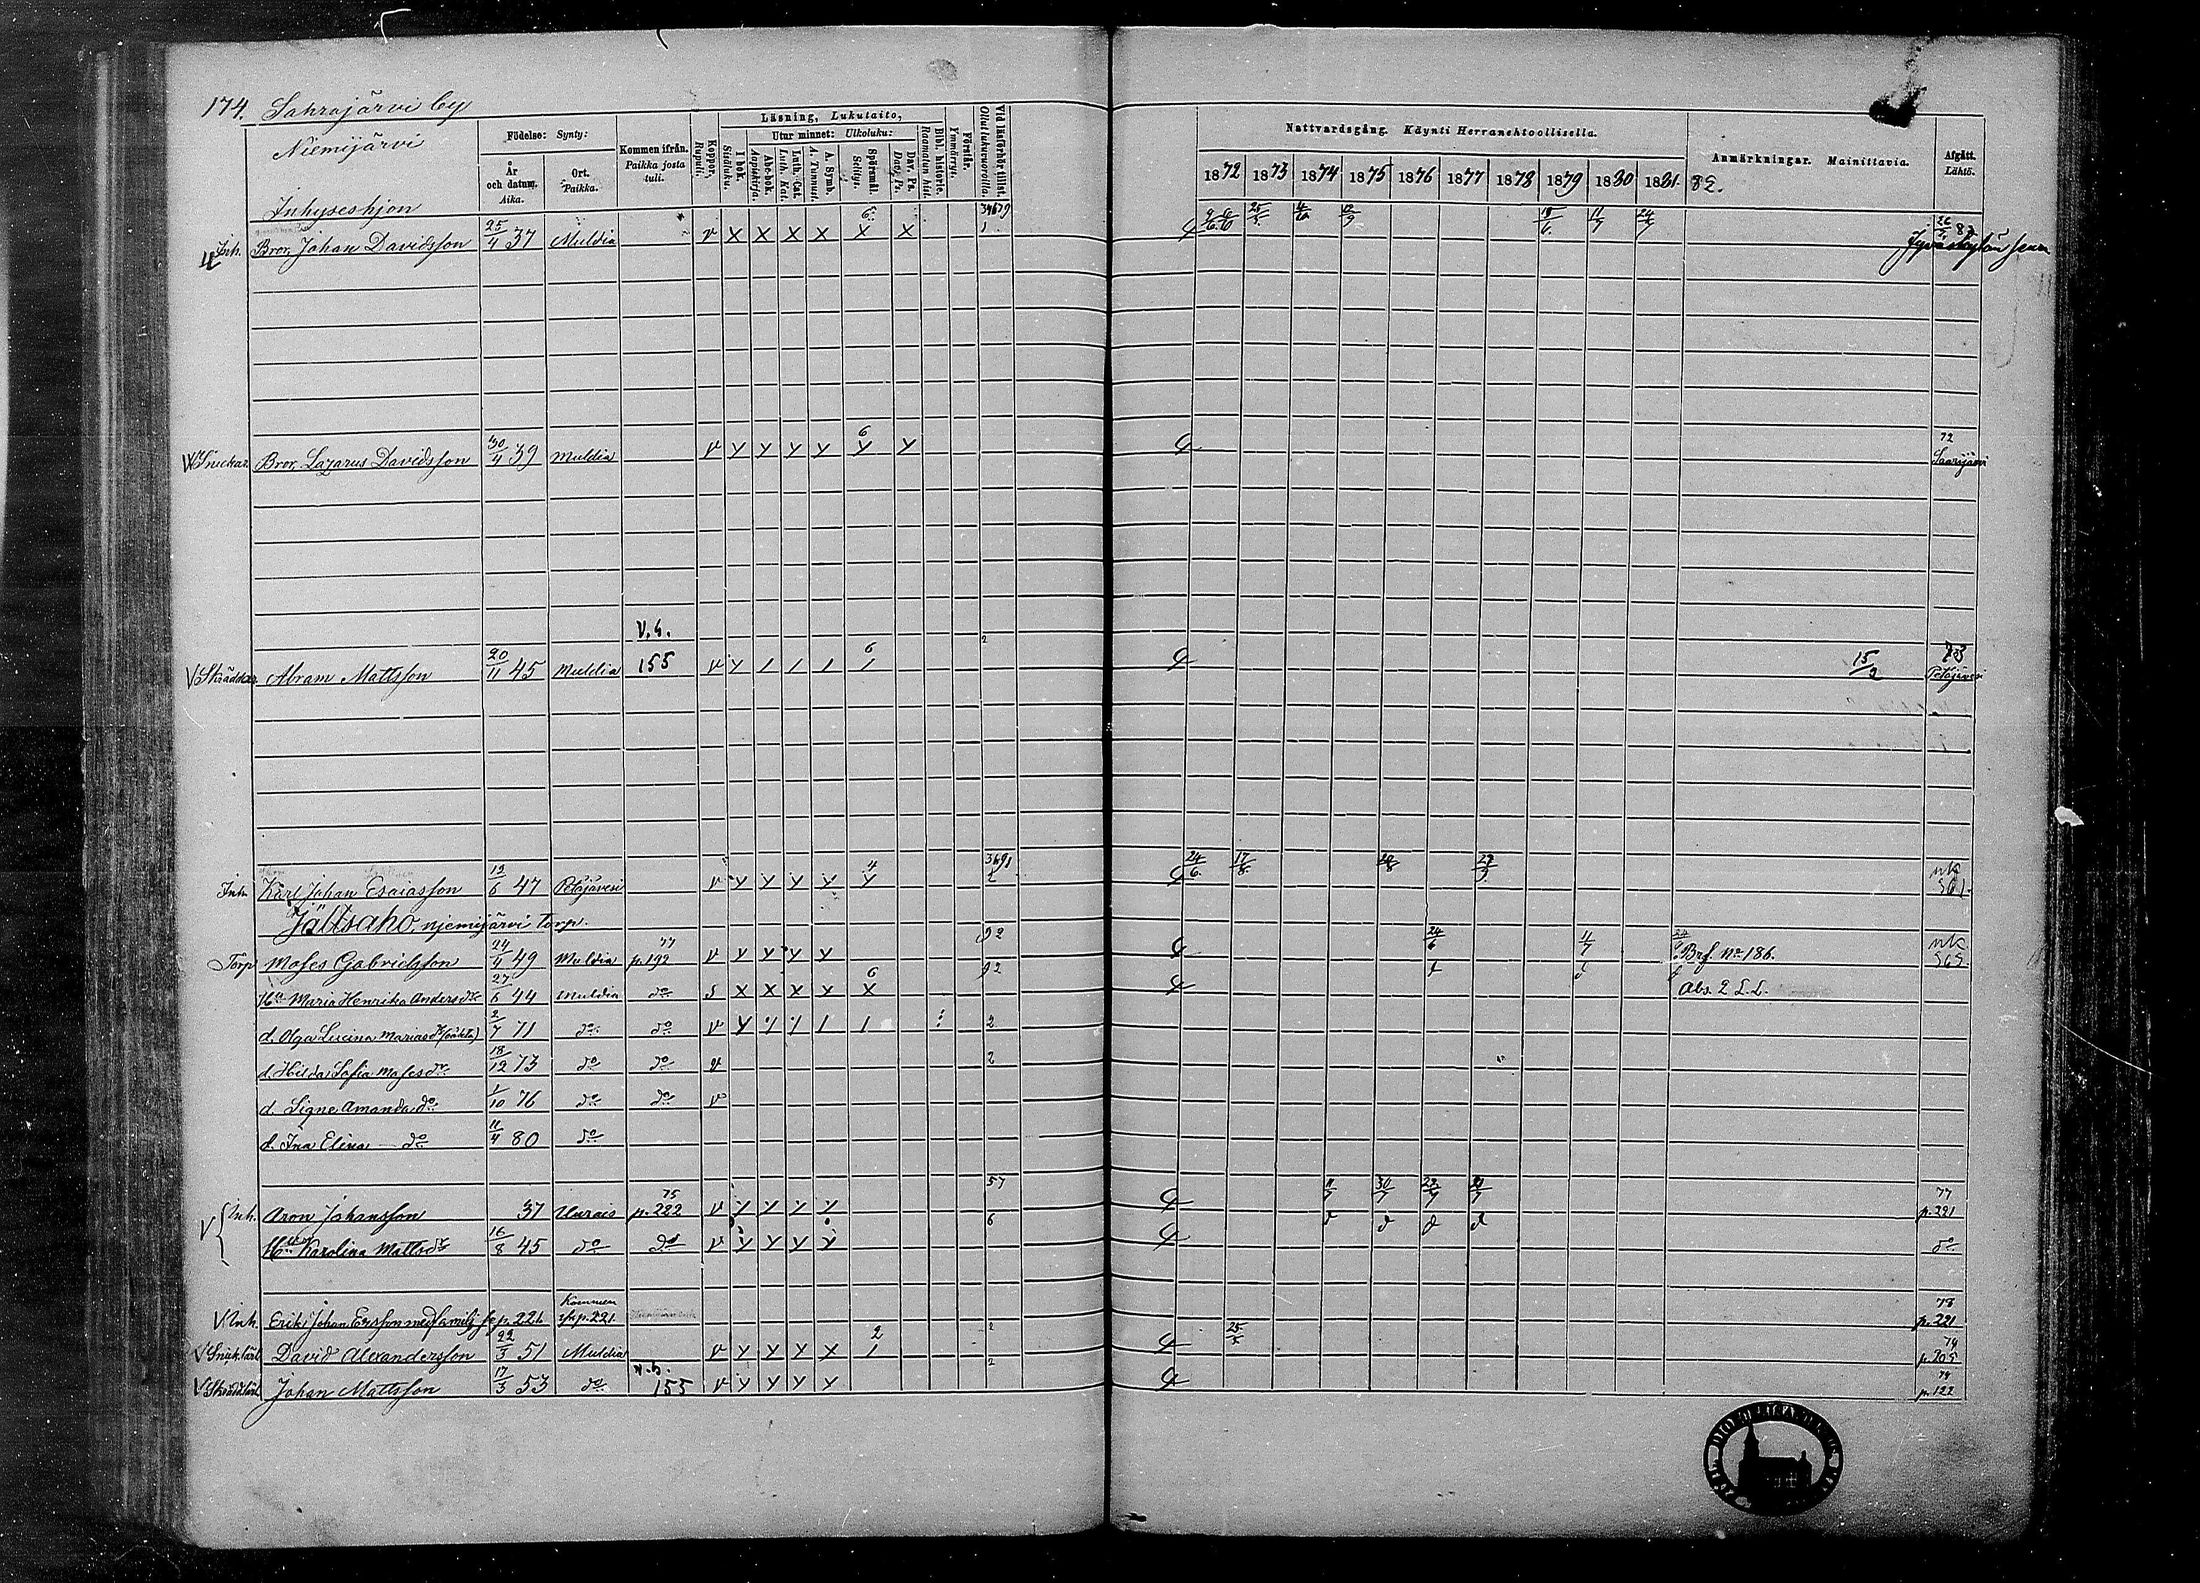 174. Sahrajärvi by
Niemijärvi
Födelse: Synty:
År och datum. Aika.
Ort. Paikka.
Kommen ifrån. Paikka josta tuli.
Koppor. Rupuli.
Läsning, Lukutaito,
I bok. Sisäluku.
Utur minnet: Ulkoluku:
Abc-bok. Aapiskirja.
Luth. Cat. Luth. Kat.
A. Symb. A. Tunnust.
Spörsmål. Selitys.
Dav. Ps. Dav. Ps.
Bibl. historie. Raamatun hist.
Förstår. Ymmärrys.
Vid läsförhör tillst. Ollut lukuvuorolla.
Nattvardsgång. Käynti Herranehtoollisella.
1872 1873 1874 1875 1876 1877 1878 1879 1880 1881 82.
Anmärkningar. Mainittavia.
Afgått. Lähtö.
Inhyseshjon
Inh. Bror, Johan Davidsson 25/4 37 Muldia v x x x x 6 x x
Snickar. Bror, Lazarus Davidsson 30/4 39 Muldia v y y y y 6 y y 72 Saarijärvi
V.h.
V Skräddar. Abram Mattsson 20/11 45 Muldia 155 v y / / / 6 / 2 15/2 73 Petäjävesi
Inh. Karl Johan Esaiasson 12/6 47 Petäjävesi v y y y y 4 y 24/6 17/8 nk 561
Jättsaho, njemijärvi torp.
Torp Moses Gabrielsson 24/4 49 Muldia 77 p. 192 v y y y y 24/6 11/7 Bref. No 186. nk 565
Hu Maria Henrika Andersdr 27/6 44 Muldia do s x x x y 6 x Abs. 2 L. L.
d. Olga Lucina Mariasdr (oäkta) 2/7 71 do do v y / / / / 2
d. Hilda Sofia Mosesdr 18/12 73 do do v 2
d. Signe Amanda do 1/10 76 do do v
d. Ina Elena do 11/4 80 do
Inh. Aron Johansson 37 Uurais 75 p. 222 v y y y y 57 11/7 30/7 77 p. 221
Hu Karolina Mattsdr 16/8 45 do do v y y y y 6 do
V Inh. Erik Johan Ersson med familj se p. 221. Kommen ifr. p. 221. 78 p. 221
V Snick. lärl. David Alexandersson 22/3 51 Muldia v y y y x 2 / 2 25/5 74 p. 205
V Skrädd. lärl. Johan Mattsson 17/3 53 do v.h. 155 v y y y y 2 74 p. 122